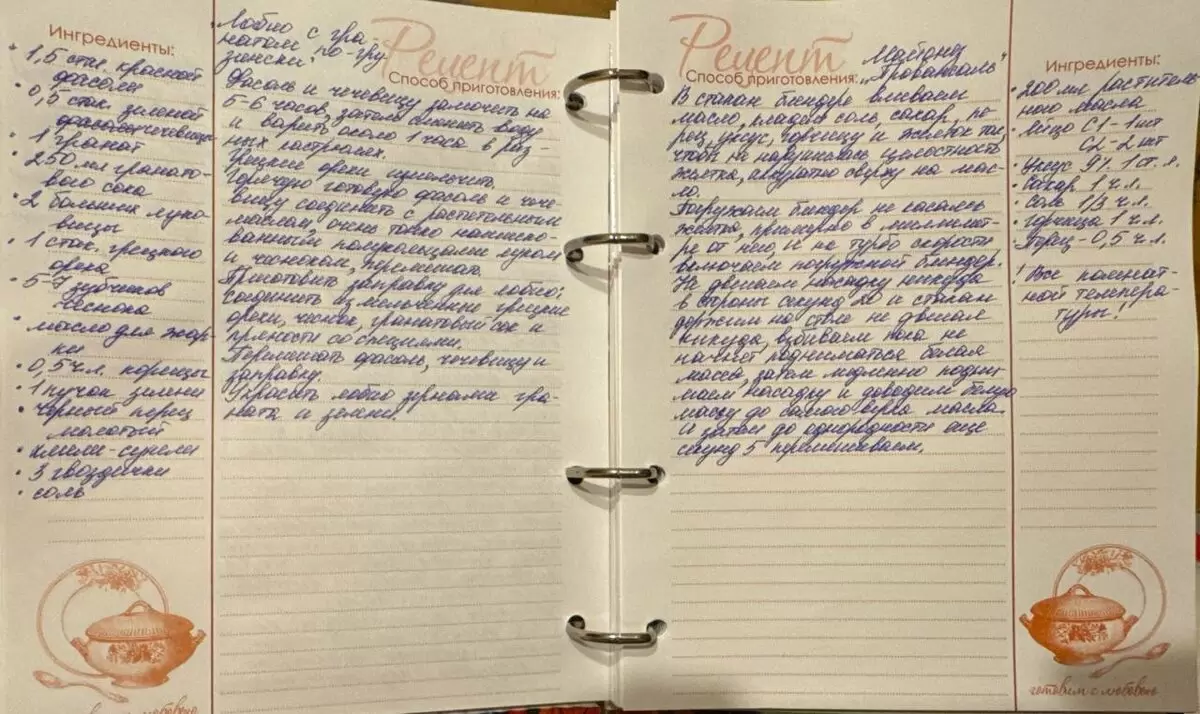 Ингредиенты:
• 1,5 стак. красной
фасоли
• 0,5 стак. зеленой
фасоли чечевицы
• 1 гранат
• 250 мл гранато-
вого сока
• 2 больших луко-
вицы
• 1 стак. грецкого
ореха
• 5-7 зубчиков
чеснока
• масло для жар-
ки
• 0,5 ч.л. корицы
• 1 пучок зелени
• черный перец
молотый
• хмели-сунели
• 3 гвоздички
• соль
готовим с любовью
"Лобио с гра-
натом по-гру-
зински"
Рецепт
Способ приготовления:
Фасоль и чечевицу замочить на
5-6 часов, затем сменить воду
и варить около 1 часа в раз-
ных кастрюлях.
Грецкие орехи измельчить.
Горячую готовую фасоль и чече-
вицу соединить с растительным
маслом, очень тонко нашинко-
ванным полукольцами луком
и чесноком, перемешать.
Приготовить заправку для лобио:
соединить измельченные грецкие
орехи, чеснок, гранатовый сок и
пряности со специями.
Перемешать фасоль, чечевицу и
заправку.
Украсить лобио зернами гра-
ната и зелени.
Рецепт
Майонез
Способ приготовления: "Провансаль"
В стакан блендера вливаем
масло, кладем соль, сахар, пе-
рец, уксус, горчицу и желток так,
чтобы не нарушилась целостность
желтка, аккуратно сверху на мас-
ло.
Погружаем блендер не касаясь
желтка, примерно в миллимет-
ре от него, и на турбо скорости
включаем погружной блендер.
Не двигаем насадку никуда
в стороны секунд 20 и стакан
держим на столе не двигая
никуда, взбиваем пока не
начнет подниматься белая
масса, затем медленно подни-
маем насадку и доводим белую
массу до самого верха масла.
И затем до однородности еще
секунд 5 перемешиваем.
Ингредиенты:
• 200 мл раститель-
ного масла
• Яйцо С1 - 1 шт
С2 - 2 шт
• Уксус 9% 1 ст. л.
• Сахар 1 ч.л.
• Соль 1/3 ч.л.
• Горчица 1 ч.л.
• Перец - 0,5 ч.л.
! Все комнат-
ной темпера-
туры!
готовим с любовью